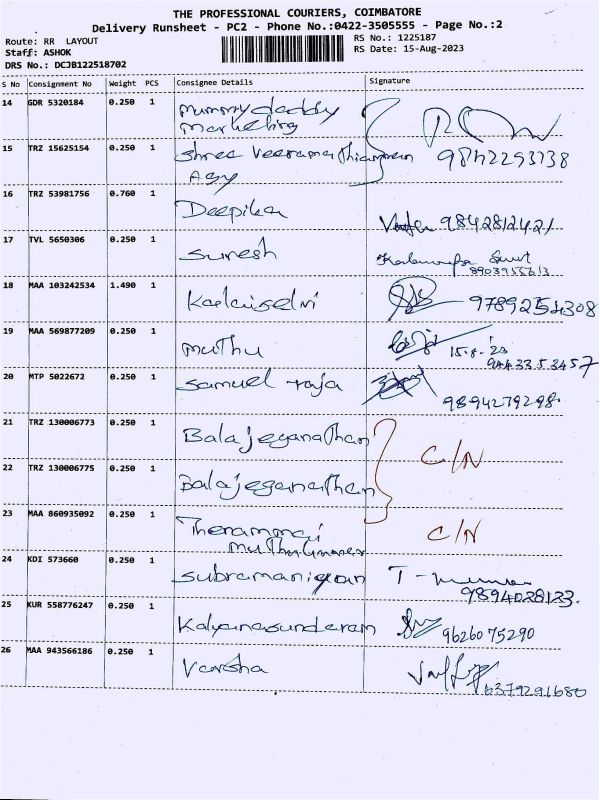 THE PROFESSIONAL COURIERS, COIMBATORE
Delivery Runsheet - PC2 - Phone No.:0422-3505555 - Page No.:2
Route: RR LAYOUT
RS No.: 1225187
Staff: ASHOK
RS Date: 15-Aug-2023
DRS No.: DCJB122518702
S No Consignment No Weight PCS Consignee Details Signature
14 GDR 5320184 0.250 1 mummy daddy
marketing
15 TRZ 15625154 0.250 1 Shree Veeramathiamman 9842293738
Agy
16 TRZ 53981756 0.760 1 Deepika 9842812421
17 TVL 5650306 0.250 1 Suresh
18 MAA 103242534 1.490 1 Kalaiselvi 9789254308
19 MAA 569877209 0.250 1 muthu 15.8.23
9443353457
20 MTP 5022672 0.250 1 Samuel raja
9894279298
21 TRZ 130006773 0.250 1 Balajeganathan
C/N
22 TRZ 130006775 0.250 1 Balajeganathan
23 MAA 860935092 0.250 1 C/N
24 KDI 573660 0.250 1 Subramaniyan
9894028133
25 KUR 558776247 0.250 1 Kalyanasunderam 9626075290
26 MAA 943566186 0.250 1 Varsha
6379291680